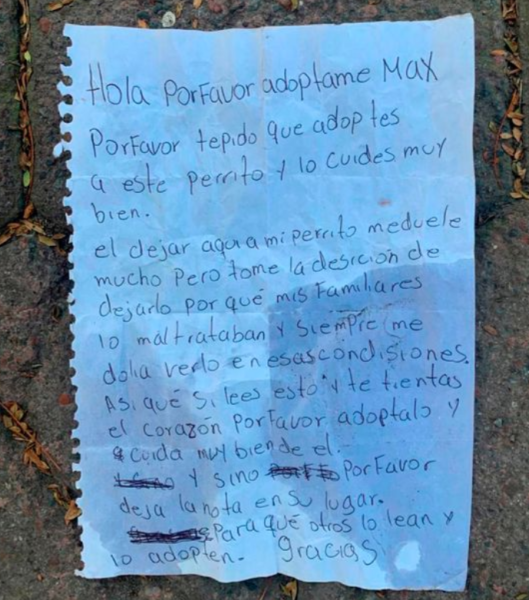 Hola PorFavor adoptame Max
PorFavor tepido que adoptes
a este perrito y lo cuides muy
bien.
el dejar aqui a mi perrito meduele
mucho Pero tome la desición de
dejarlo por qué mis Familiares
lo maltrataban y siempre me
dolia verlo en esas condisiones.
Asi qué si lees esto y te tientas
el corazón PorFavor adoptalo y
cuida muy bien de el.
y sino PorFavor
deja la nota en su lugar.
Para qué otros lo lean y
lo adopten. gracias